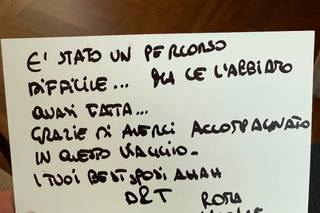 E' STATO UN PERCORSO
DIFFICILE... MA CE L'ABBIAMO
QUASI FATTA...
GRAZIE DI AVERCI ACCOMPAGNATO
IN QUESTO VIAGGIO.
I TUOI BEST SPOSI AHAH
D&T ROMA